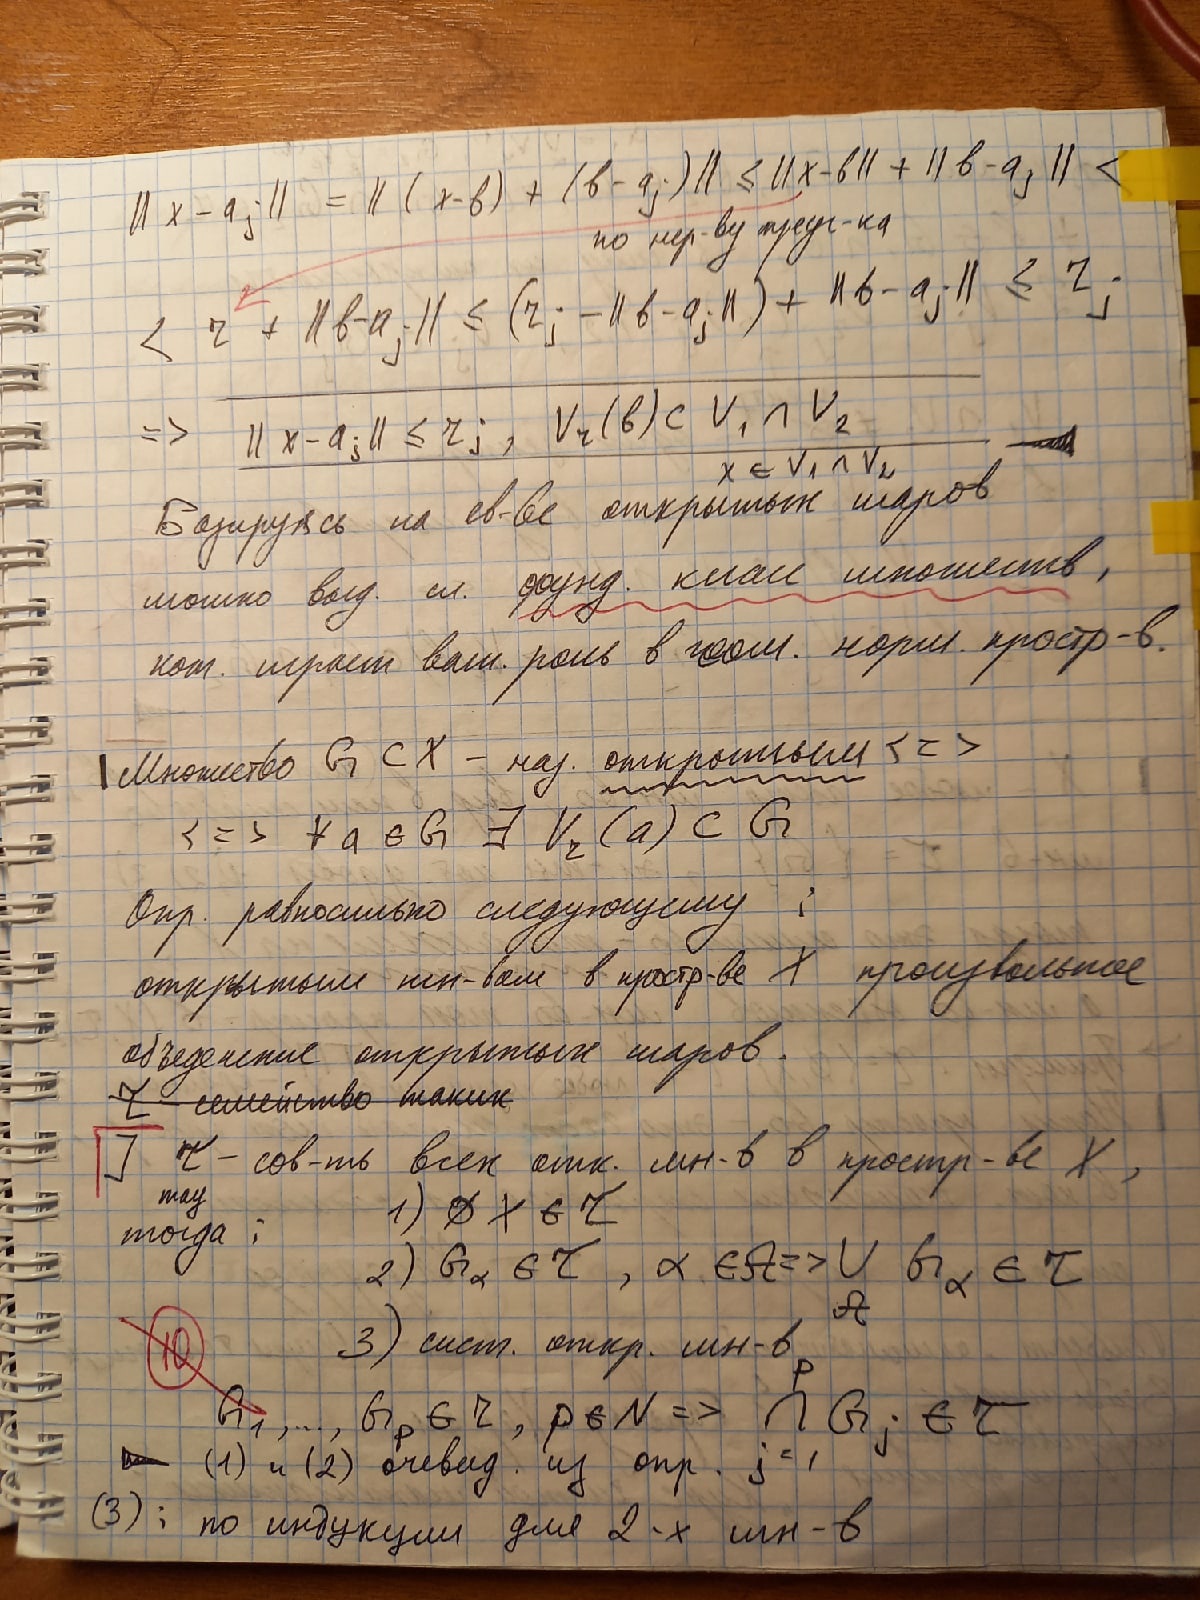 ||x - a_j|| = ||(x-в) + (в-a_j)|| ≤ ||x-в|| + ||в-a_j|| <
по нер-ву треуг-ка
< r + ||в-a_j|| ≤ (r_j - ||в-a_j||) + ||в-a_j|| ≤ r_j
=> ||x-a_j|| ≤ r_j, V_r(в) ⊂ V_1 ∩ V_2
x ∈ V_1 ∩ V_2
Базируясь на св-ве открытых шаров
можно выд. сл. фунд. класс множеств,
кот. играет важ. роль в геом. норм. простр-в.
Множество G ⊂ X - наз. открытым <=>
<=> ∀ a ∈ G ∃ V_r(a) ⊂ G
Опр. равносильно следующему :
открытым мн-вом в простр-ве X произвольное
объеденение открытых шаров.
τ - семейство таких
] τ - сов-ть всех отк. мн-в в простр-ве X,
тау
тогда : 1) ∅ X ∈ τ
2) G_α ∈ τ, α ∈ A => ∪ G_α ∈ τ
A
3) сист. откр. мн-в
10
G_1, ..., G_p ∈ τ, p ∈ N => ∩_{j=1}^{p} G_j ∈ τ
(1) и (2) очевид. из опр.
(3) : по индукции для 2-х мн-в